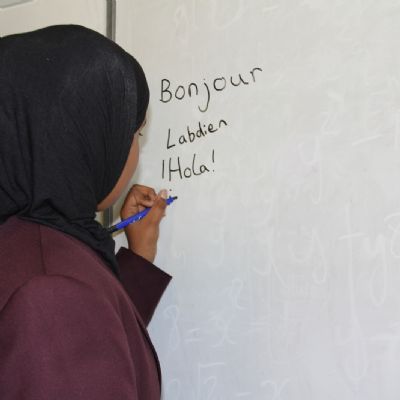 Bonjour
Labdien
¡Hola!